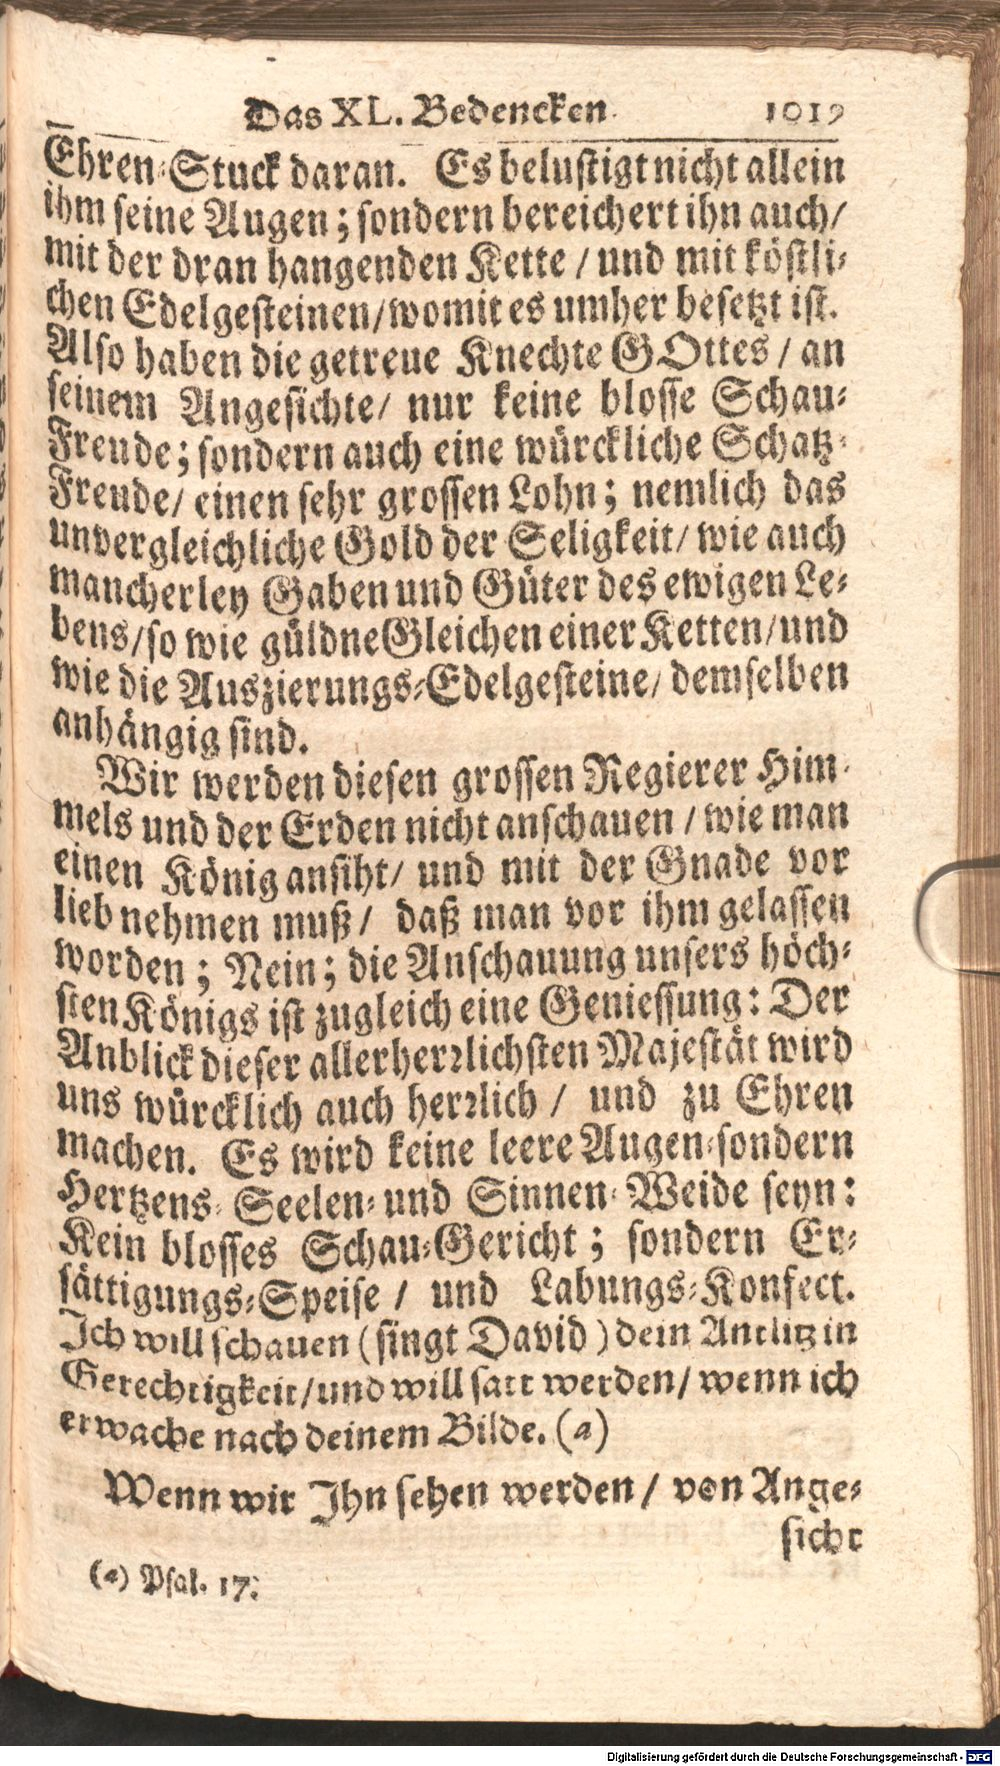 Das XL. Bedencken. 1019
Ehren-Stuck daran. Es belustigt nicht allein
ihm seine Augen; sondern bereichert ihn auch/
mit der dran hangenden Kette / und mit köstli-
chen Edelgesteinen/womit es umher besetzt ist.
Also haben die getreue Knechte GOttes / an
seinem Angesichte/ nur keine blosse Schau-
Freude; sondern auch eine würckliche Schatz-
Freude/ einen sehr grossen Lohn; nemlich das
unvergleichliche Gold der Seligkeit/ wie auch
mancherley Gaben und Güter des ewigen Le-
bens/so wie güldne Gleichen einer Ketten/und
wie die Auszierungs-Edelgesteine/ demselben
anhängig sind.
Wir werden diesen grossen Regierer Him-
mels und der Erden nicht anschauen / wie man
einen König ansiht/ und mit der Gnade vor
lieb nehmen muß/ daß man vor ihm gelassen
worden; Nein; die Anschauung unsers höch-
sten Königs ist zugleich eine Geniessung: Der
Anblick dieser allerherꝛlichsten Majestät wird
uns würcklich auch herꝛlich / und zu Ehren
machen. Es wird keine leere Augen-sondern
Hertzens- Seelen- und Sinnen-Weide seyn:
Kein blosses Schau-Gericht; sondern Er-
sättigungs-Speise / und Labungs-Konfect.
Ich will schauen (singt David) dein Antlitz in
Gerechtigkeit/und will satt werden/ wenn ich
erwache nach deinem Bilde. (a)
Wenn wir Ihn sehen werden/ von Ange-
sicht
(a) Psal. 17.
Digitalisierung gefördert durch die Deutsche Forschungsgemeinschaft - DFG